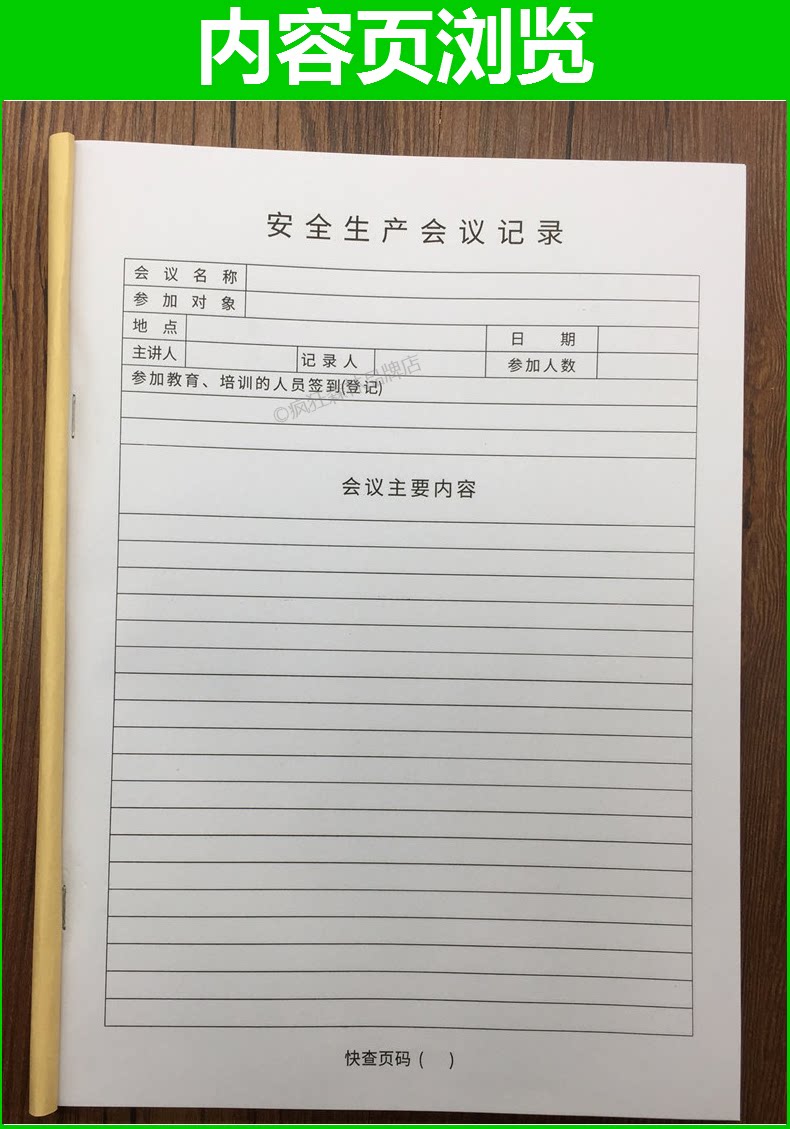 内容页浏览
安全生产会议记录
会议名称
参加对象
地点 日期
主讲人 记录人 参加人数
参加教育、培训的人员签到(登记)
会议主要内容
快查页码 ( )